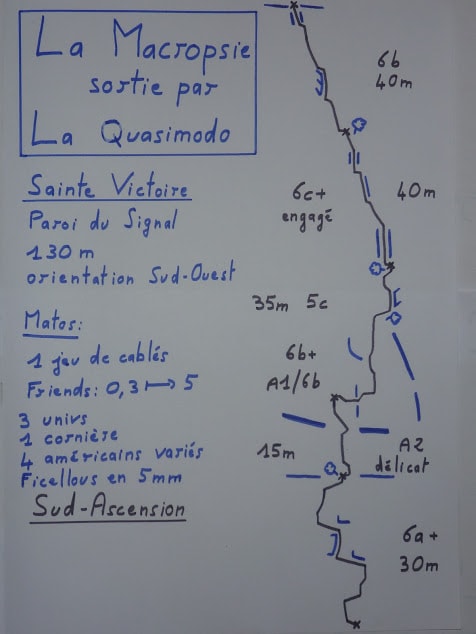 La Macropsie
sortie par
La Quasimodo
Sainte Victoire
Paroi du Signal
130 m
orientation Sud-Ouest
Matos:
1 jeu de cablés
Friends: 0,3 ↦ 5
3 univs
1 cornière
4 américains variés
Ficellous en 5mm
Sud-Ascension
6b
40m
6c+
engagé
40m
35m 5c
6b+
A1/6b
15m
A2
délicat
6a+
30m